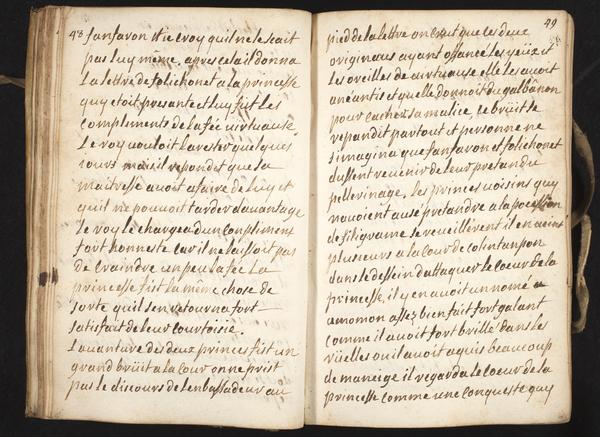 48 fanfaron et ie croy quil ne le scait
pas luy même. apres cela il donna
La lettre de folichon et a la princesse
quy etoit presante et luy fit les
compliments de la fée uirtuause
Le roy uouloit larester quelques
iours mais il repondet que sa
maitresse auoit afaire de luy et
quil ne pouuoit tarder dauantage
Le roy le chargea dun compliment
fort honneste car il ne laissoit pas
de craindre un peu la fée La
princesse fist la même chose de
sorte quil sen retourna fort
satisfait de leur courtoisie.
Lauanture des deux princes fist un
grand brüit a la cour on ne prist
pas le discours de lenbassadeur au
49
pied de la lettre on crut que ces deux
originaus ayant ofancé les yeüx et
les oreilles de uirtuause elle les auoit
anéantis et quelle donnoit du galbanon
pour cacher sa malice, ce brüit se
repandit partout et personne ne
simagina que fanfaron et folichonet
dussent reuenir de leur pretandu
pellerinage, les princes uoisins quy
nauoient ausé pretandre a la pocession
de filigranne se reueillérent il en uint
plusieurs a la cour de colintanpon
dans le dessein dattaquer le coeur de la
princesse, il y en auoit un nomé
amomon assez bien fait fort galant
comme il auoit fort brillé dans les
rüelles ou il auoit aquis beaucoup
de maneige il regarda le coeur de la
princesse comme une conqueste quy